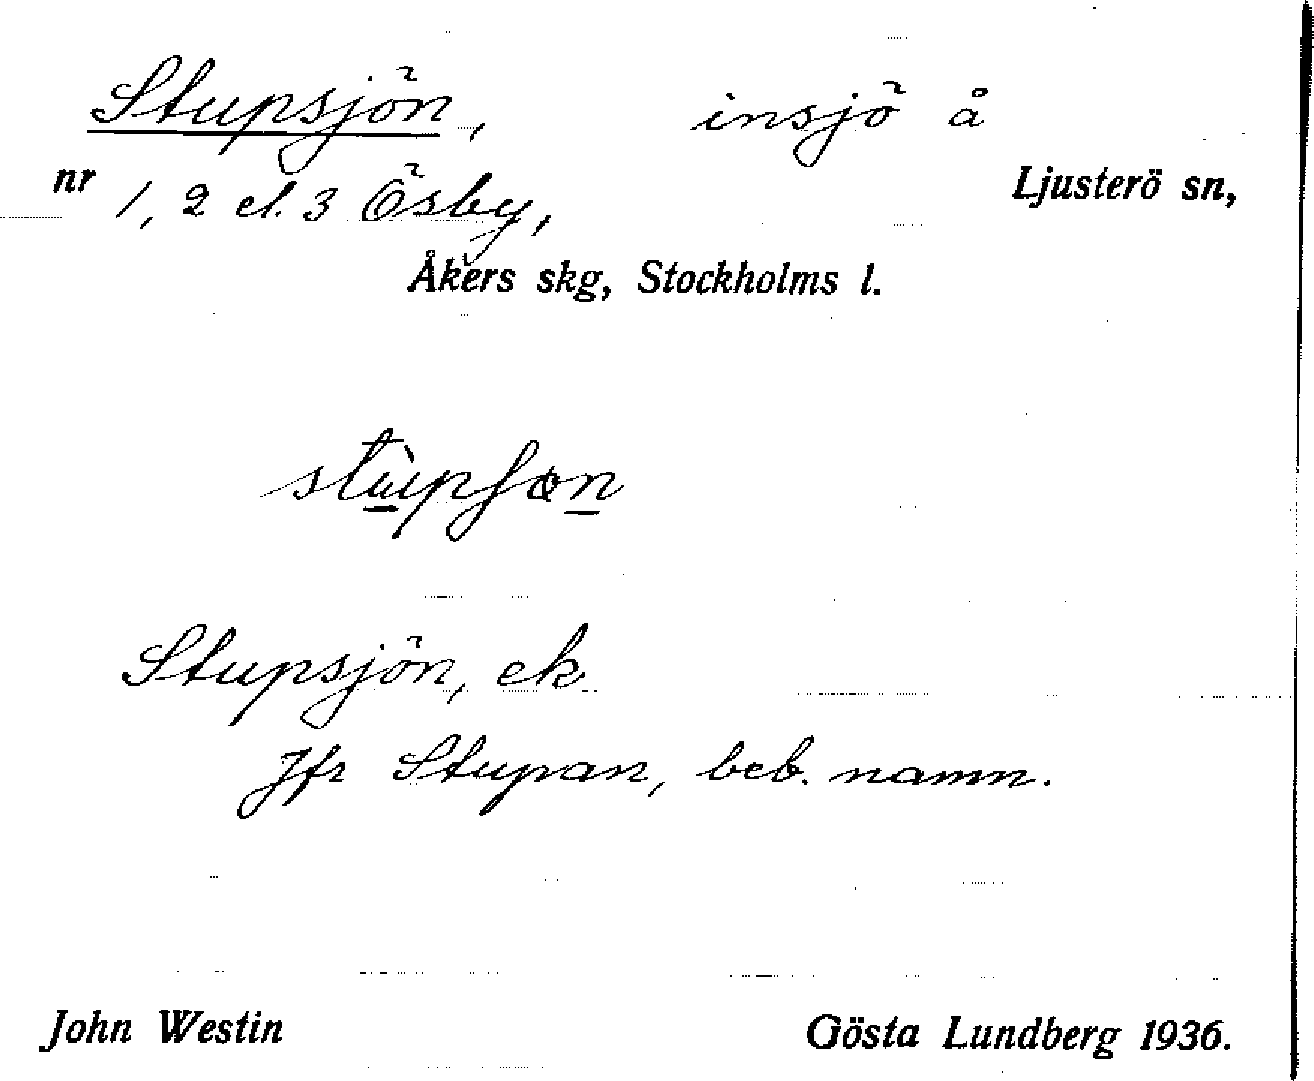 Stupsjön, insjö å
nr 1, 2 el. 3 Ösby, Ljusterö sn,
Åkers skg, Stockholms l.
Stupsjön, ek
Jfr Stupan, beb. namn.
John Westin Gösta Lundberg 1936.